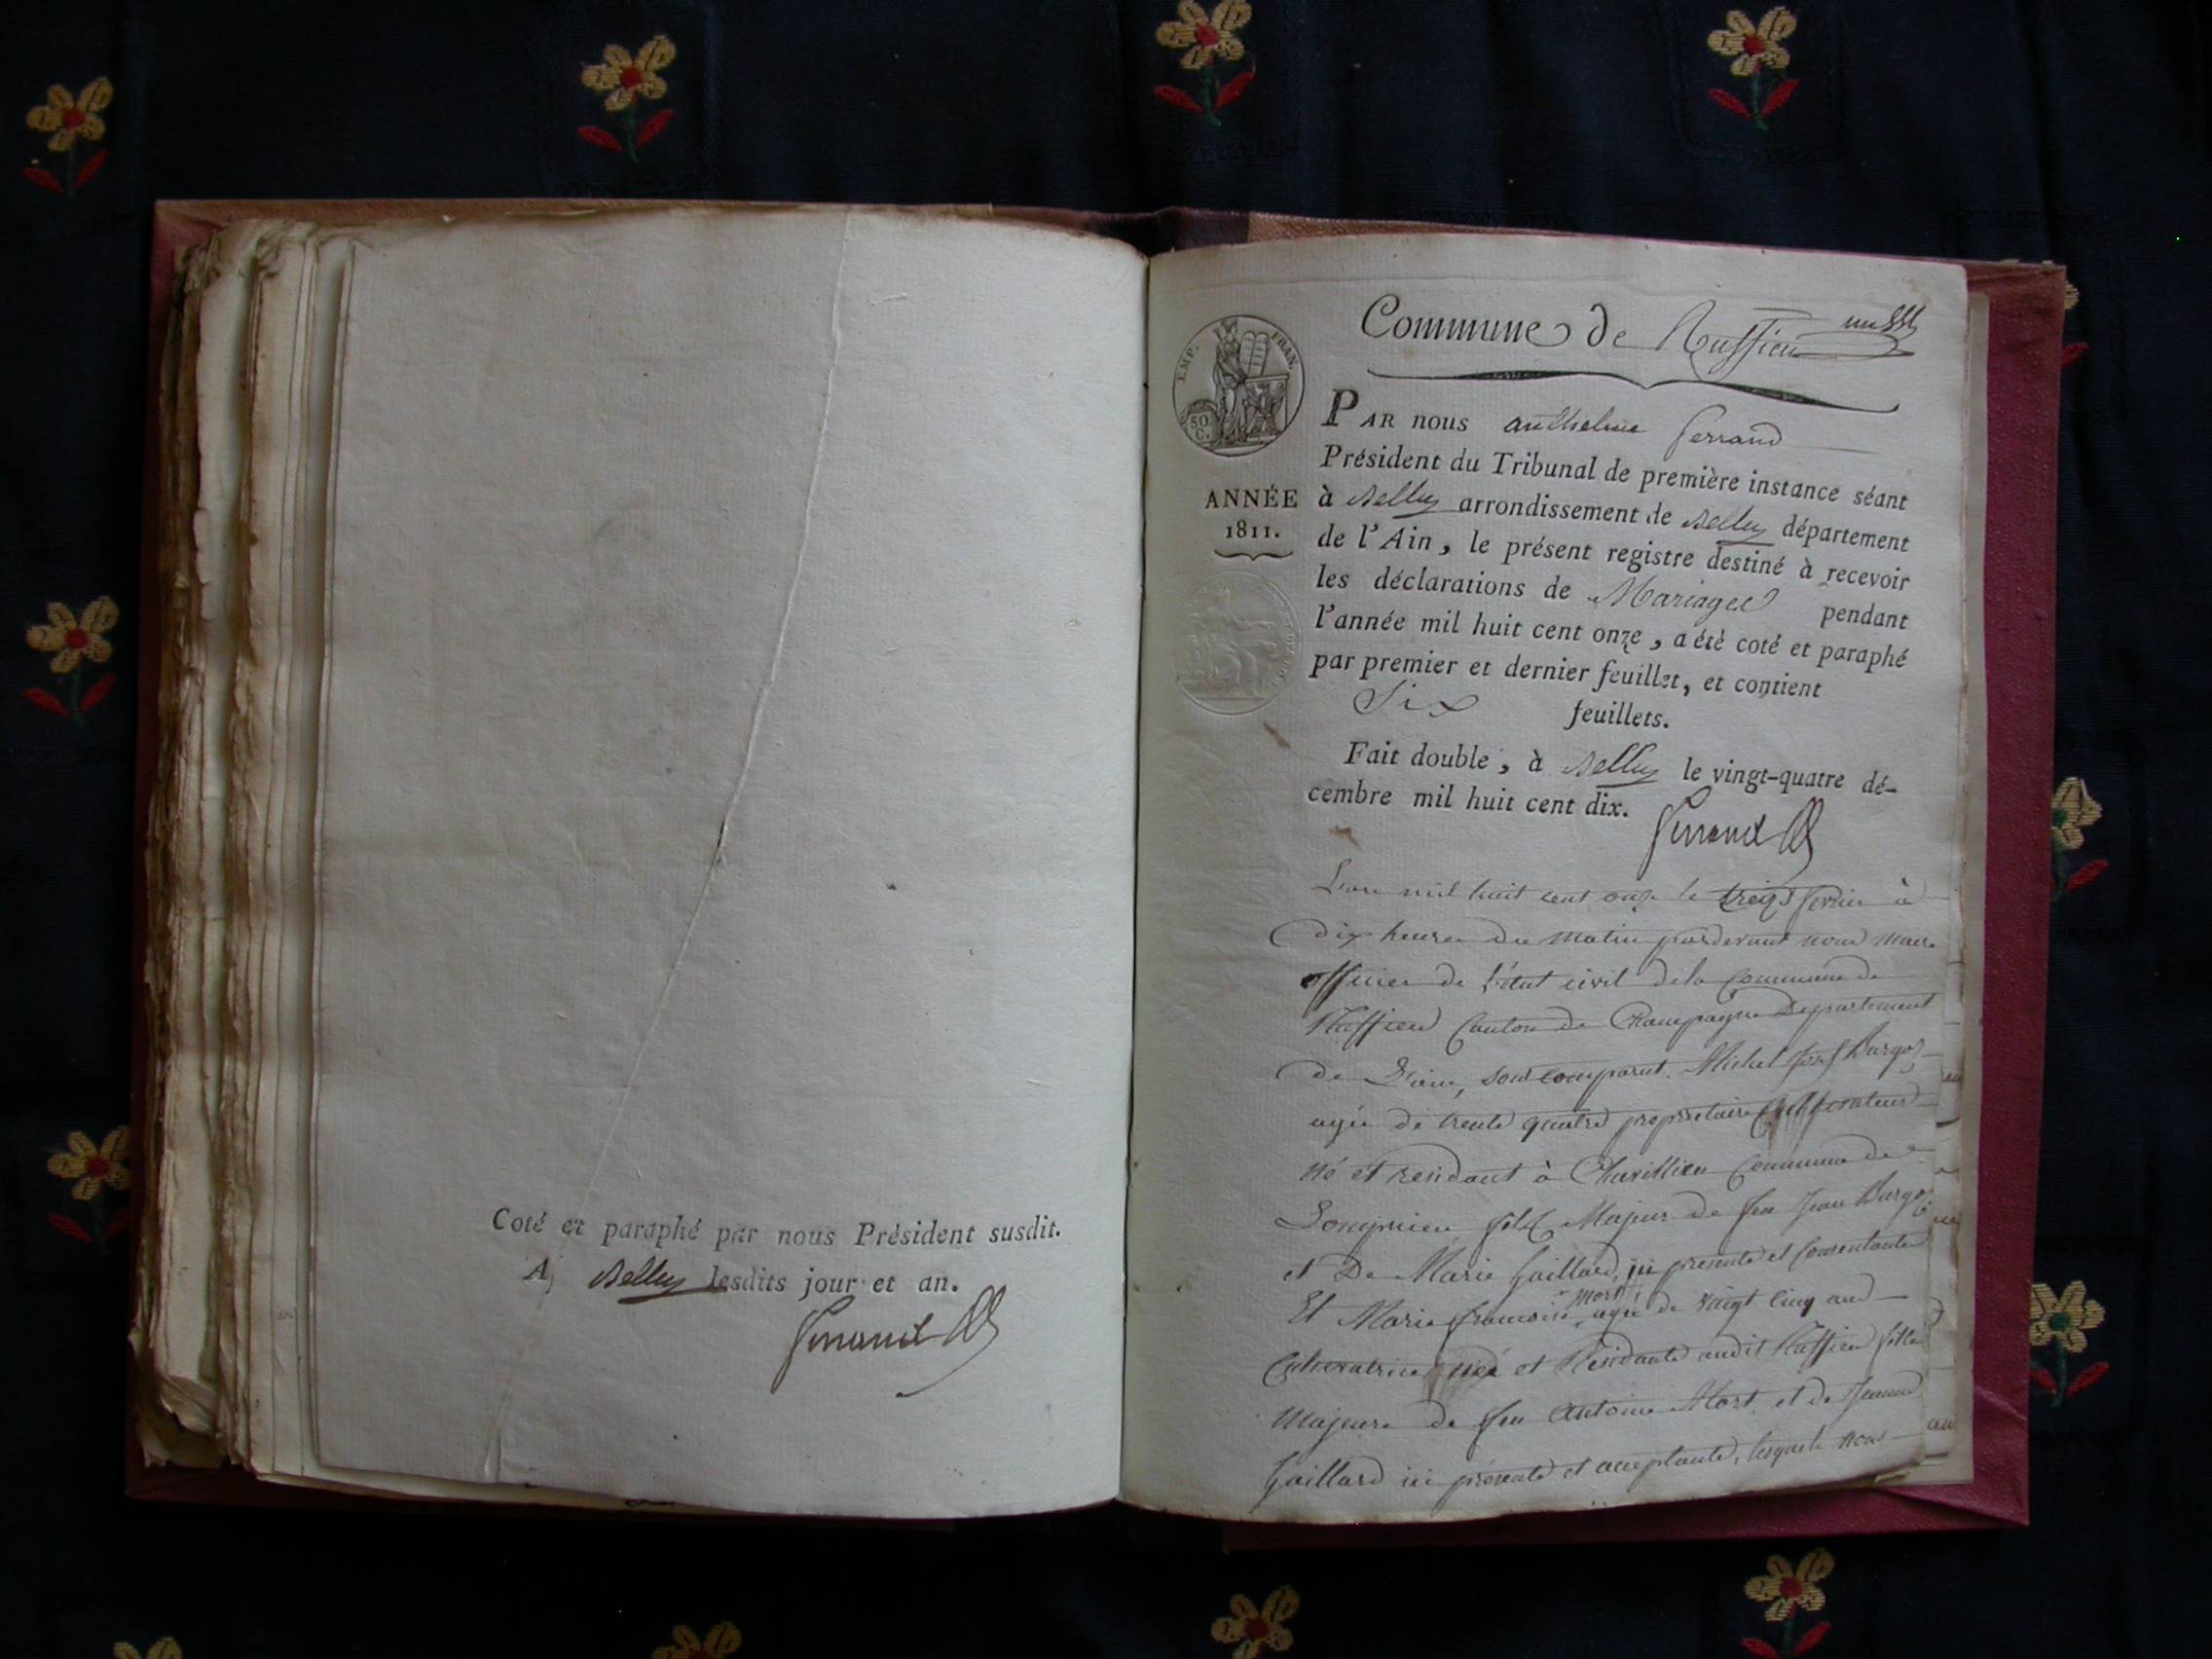 Coté et paraphé par nous Président susdit.
A Belley lesdits jour et an.
Ferrand
un
Commune de Ruffieu
EMP. FRAN.
50 C.
ANNÉE
1811.
PAR nous anthelme ferrand
Président du Tribunal de première instance séant
à Belley arrondissement de Belley département
de l'Ain, le présent registre destiné à recevoir
les déclarations de Mariages pendant
l'année mil huit cent onze, a été coté et paraphé
par premier et dernier feuillet, et contient
Six feuillets.
Fait double, à Belley le vingt-quatre dé-
cembre mil huit cent dix.
Ferrand
L'an mil huit cent onze le treize fevrier à
dix heures du matin pardevant nous maire
officier de l'état civil de la Commune de
Ruffieu Canton de Champagne Departement
de L'ain, sont comparut Michel Josef Burgos
agée de trente quatre proprietaire Cultivateur
né et residant à Chavillieu Commune de
Lompnieu fils Majeur de feu Jean Burgos
et De Marie Gaillard, ici presente et Consentante
Et Marie francoise mort agée de vaigt Cinq ans
Cultivatrice née et Residante audit Ruffieu fille
Majeure de feu Antoine Mort, et de Jeanne
Gaillard ici présente et acceptante, lesquels nous